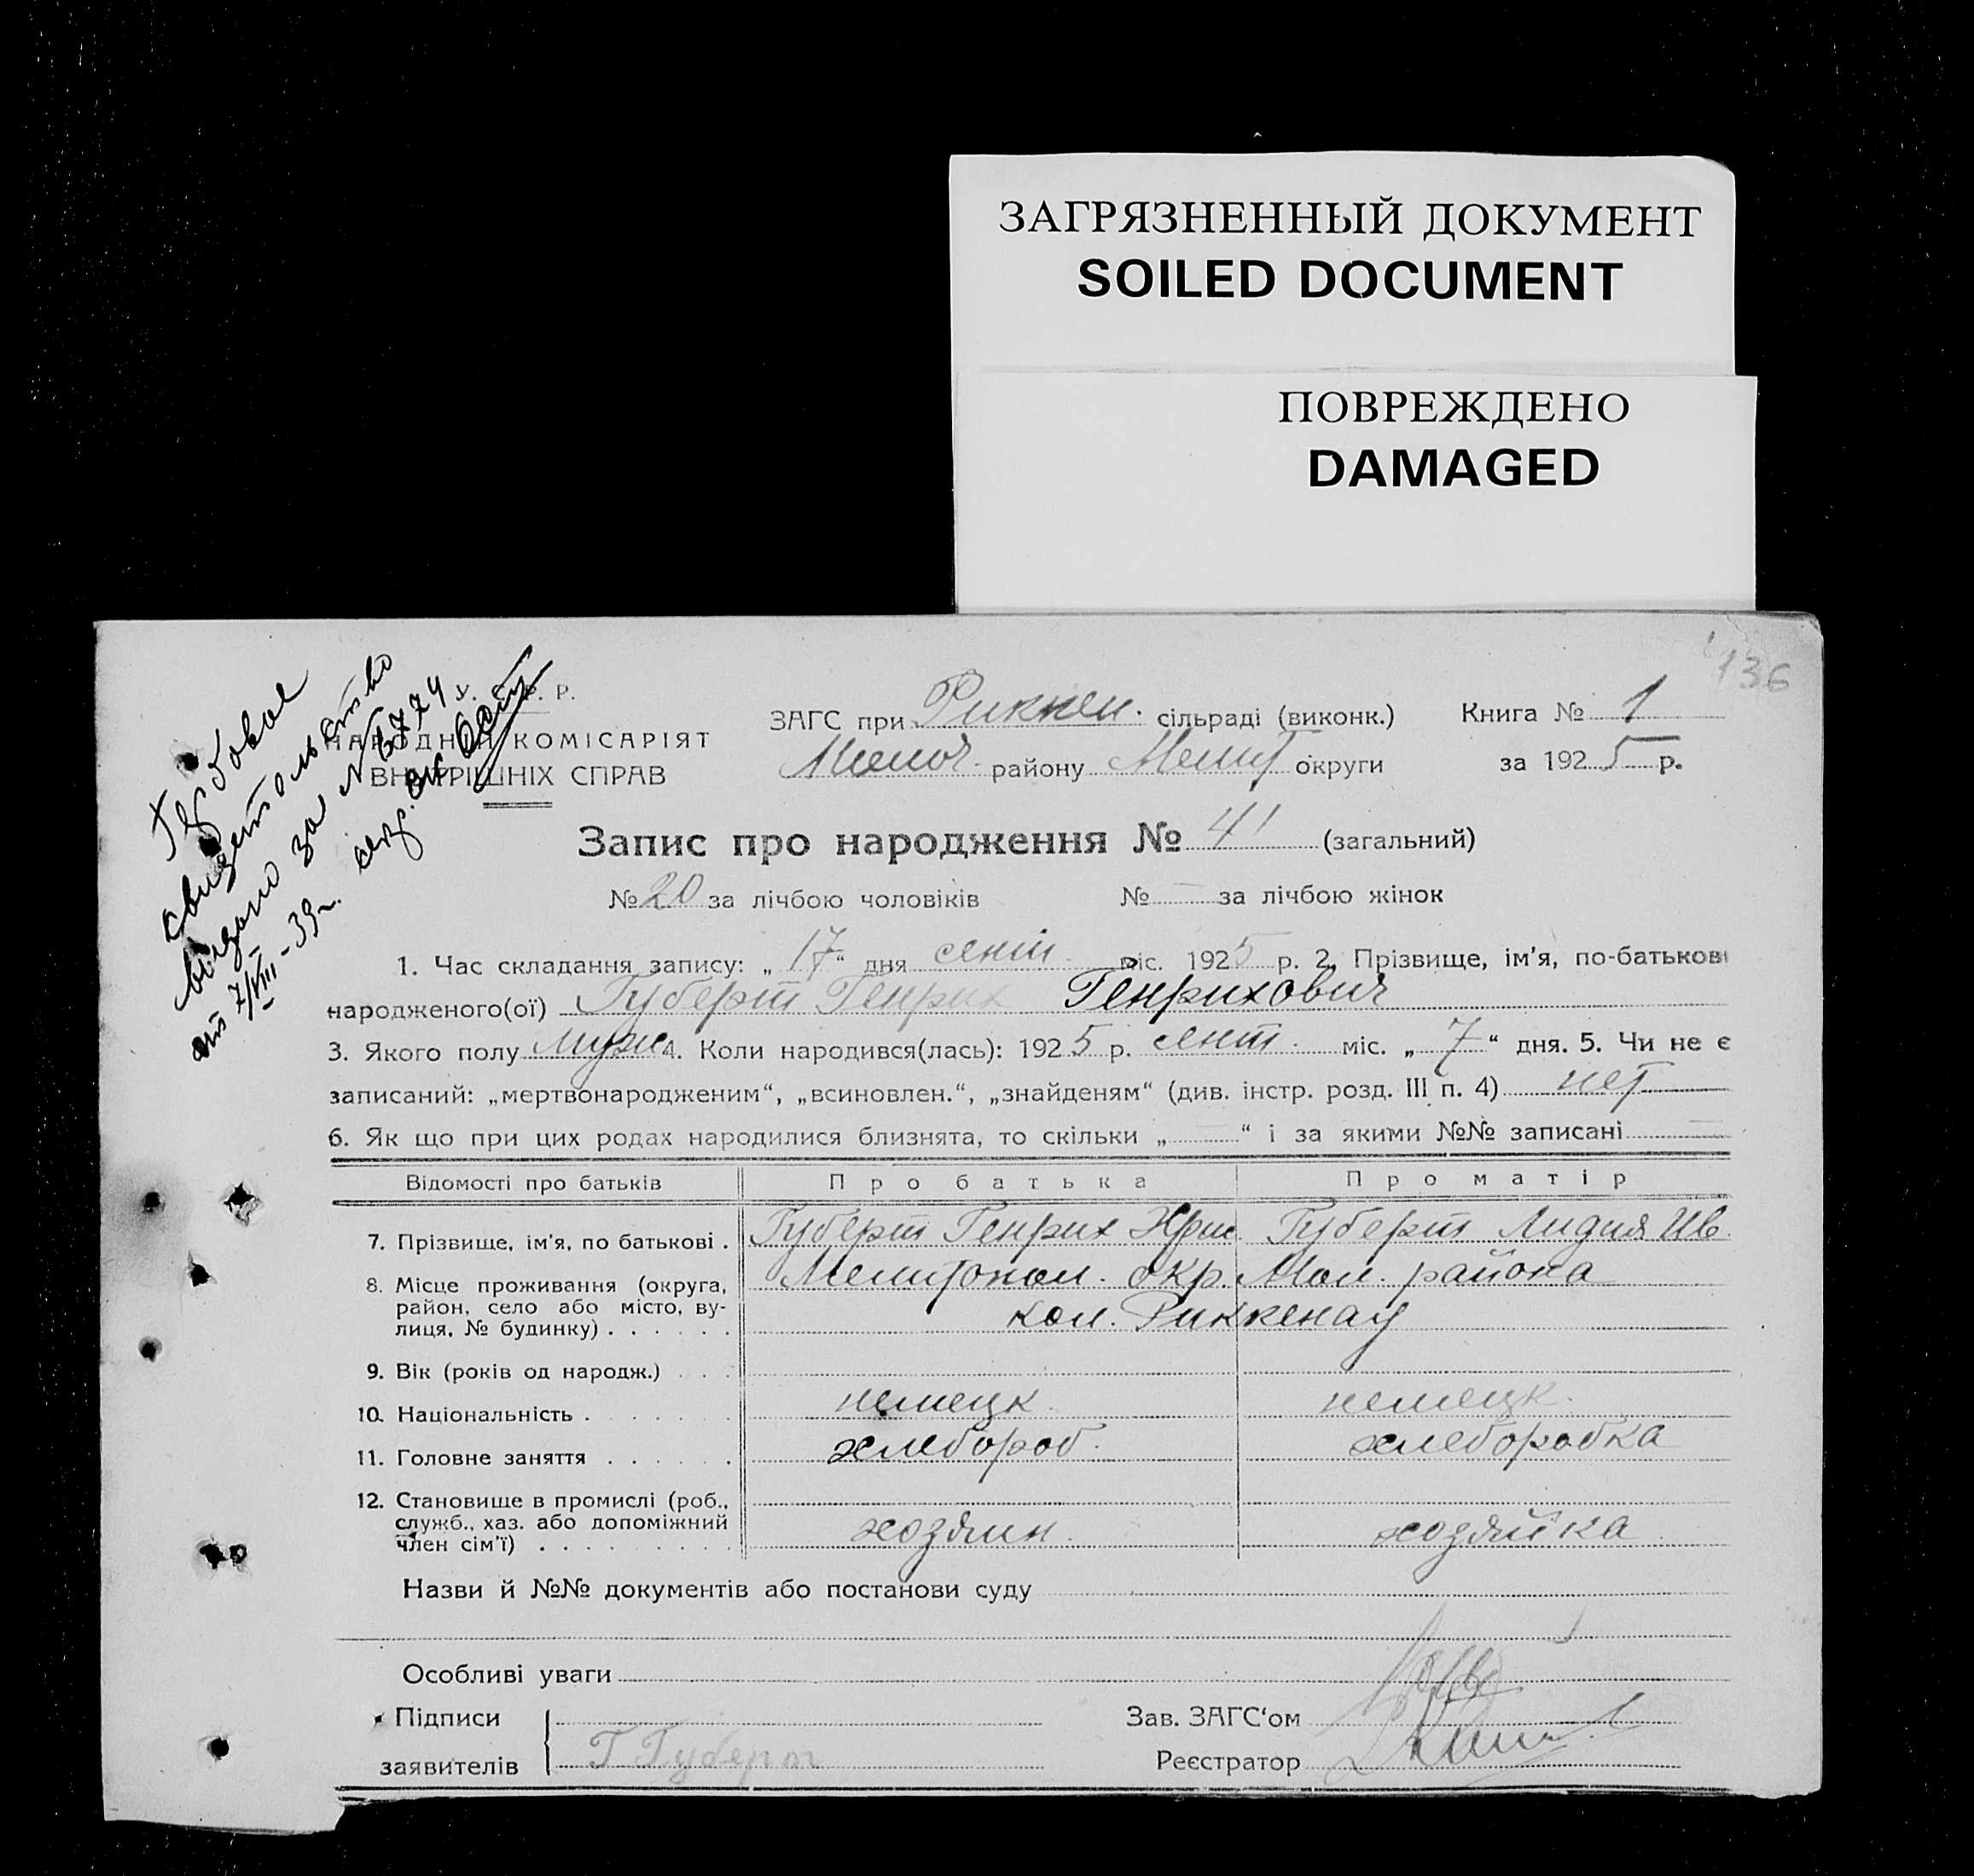 ЗАГРЯЗНЕННЫЙ ДОКУМЕНТ
SOILED DOCUMENT
ПОВРЕЖДЕНО
DAMAGED
136
Гербовое
свидетельство
выдано за № 63774
от 7/VIII-39 г.
У. С. Р. Р.
НАРОДНІЙ КОМІСАРІЯТ
ВНУТРІШНІХ СПРАВ
ЗАГС при Риккен. сільраді (виконк.) Книга № 1
Молоч. району Мелит округи за 1925 р.
Запис про народження № 41 (загальний)
№ 20 за лічбою чоловіків № — за лічбою жінок
1. Час складання запису: „17“ дня сент. міс. 1925 р. 2. Прізвище, ім'я, по-батькові
народженого(ої) Губерт Генрих Генрихович
3. Якого полу муж 4. Коли народився(лась): 1925 р. сент. міс. „7“ дня. 5. Чи не є
записаний: „мертвонародженим“, „всиновлен.“, „знайденям“ (див. інстр. розд. III п. 4) нет
6. Як що при цих родах народилися близнята, то скільки „—“ і за якими №№ записані —
Відомості про батьків Про батька Про матір
7. Прізвище, ім'я, по батькові . Губерт Генрих Хрис. Губерт Лидия Ив.
8. Місце проживання (округа, Мелитопол. окр. Мол. района
район, село або місто, ву- кол. Риккенау
лиця, № будинку) . . . . . .
9. Вік (років од народж.) . . .
10. Національність . . . . . . . немецк. немецк.
11. Головне заняття . . . . . . хлебороб. хлеборобка
12. Становище в промислі (роб.,
служб., хаз. або допоміжний хозяин. хозяйка
член сім'ї) . . . . . . . . .
Назви й №№ документів або постанови суду
Особливі уваги
Підписи Зав. ЗАГС'ом
заявителів Г Губерт Реєстратор